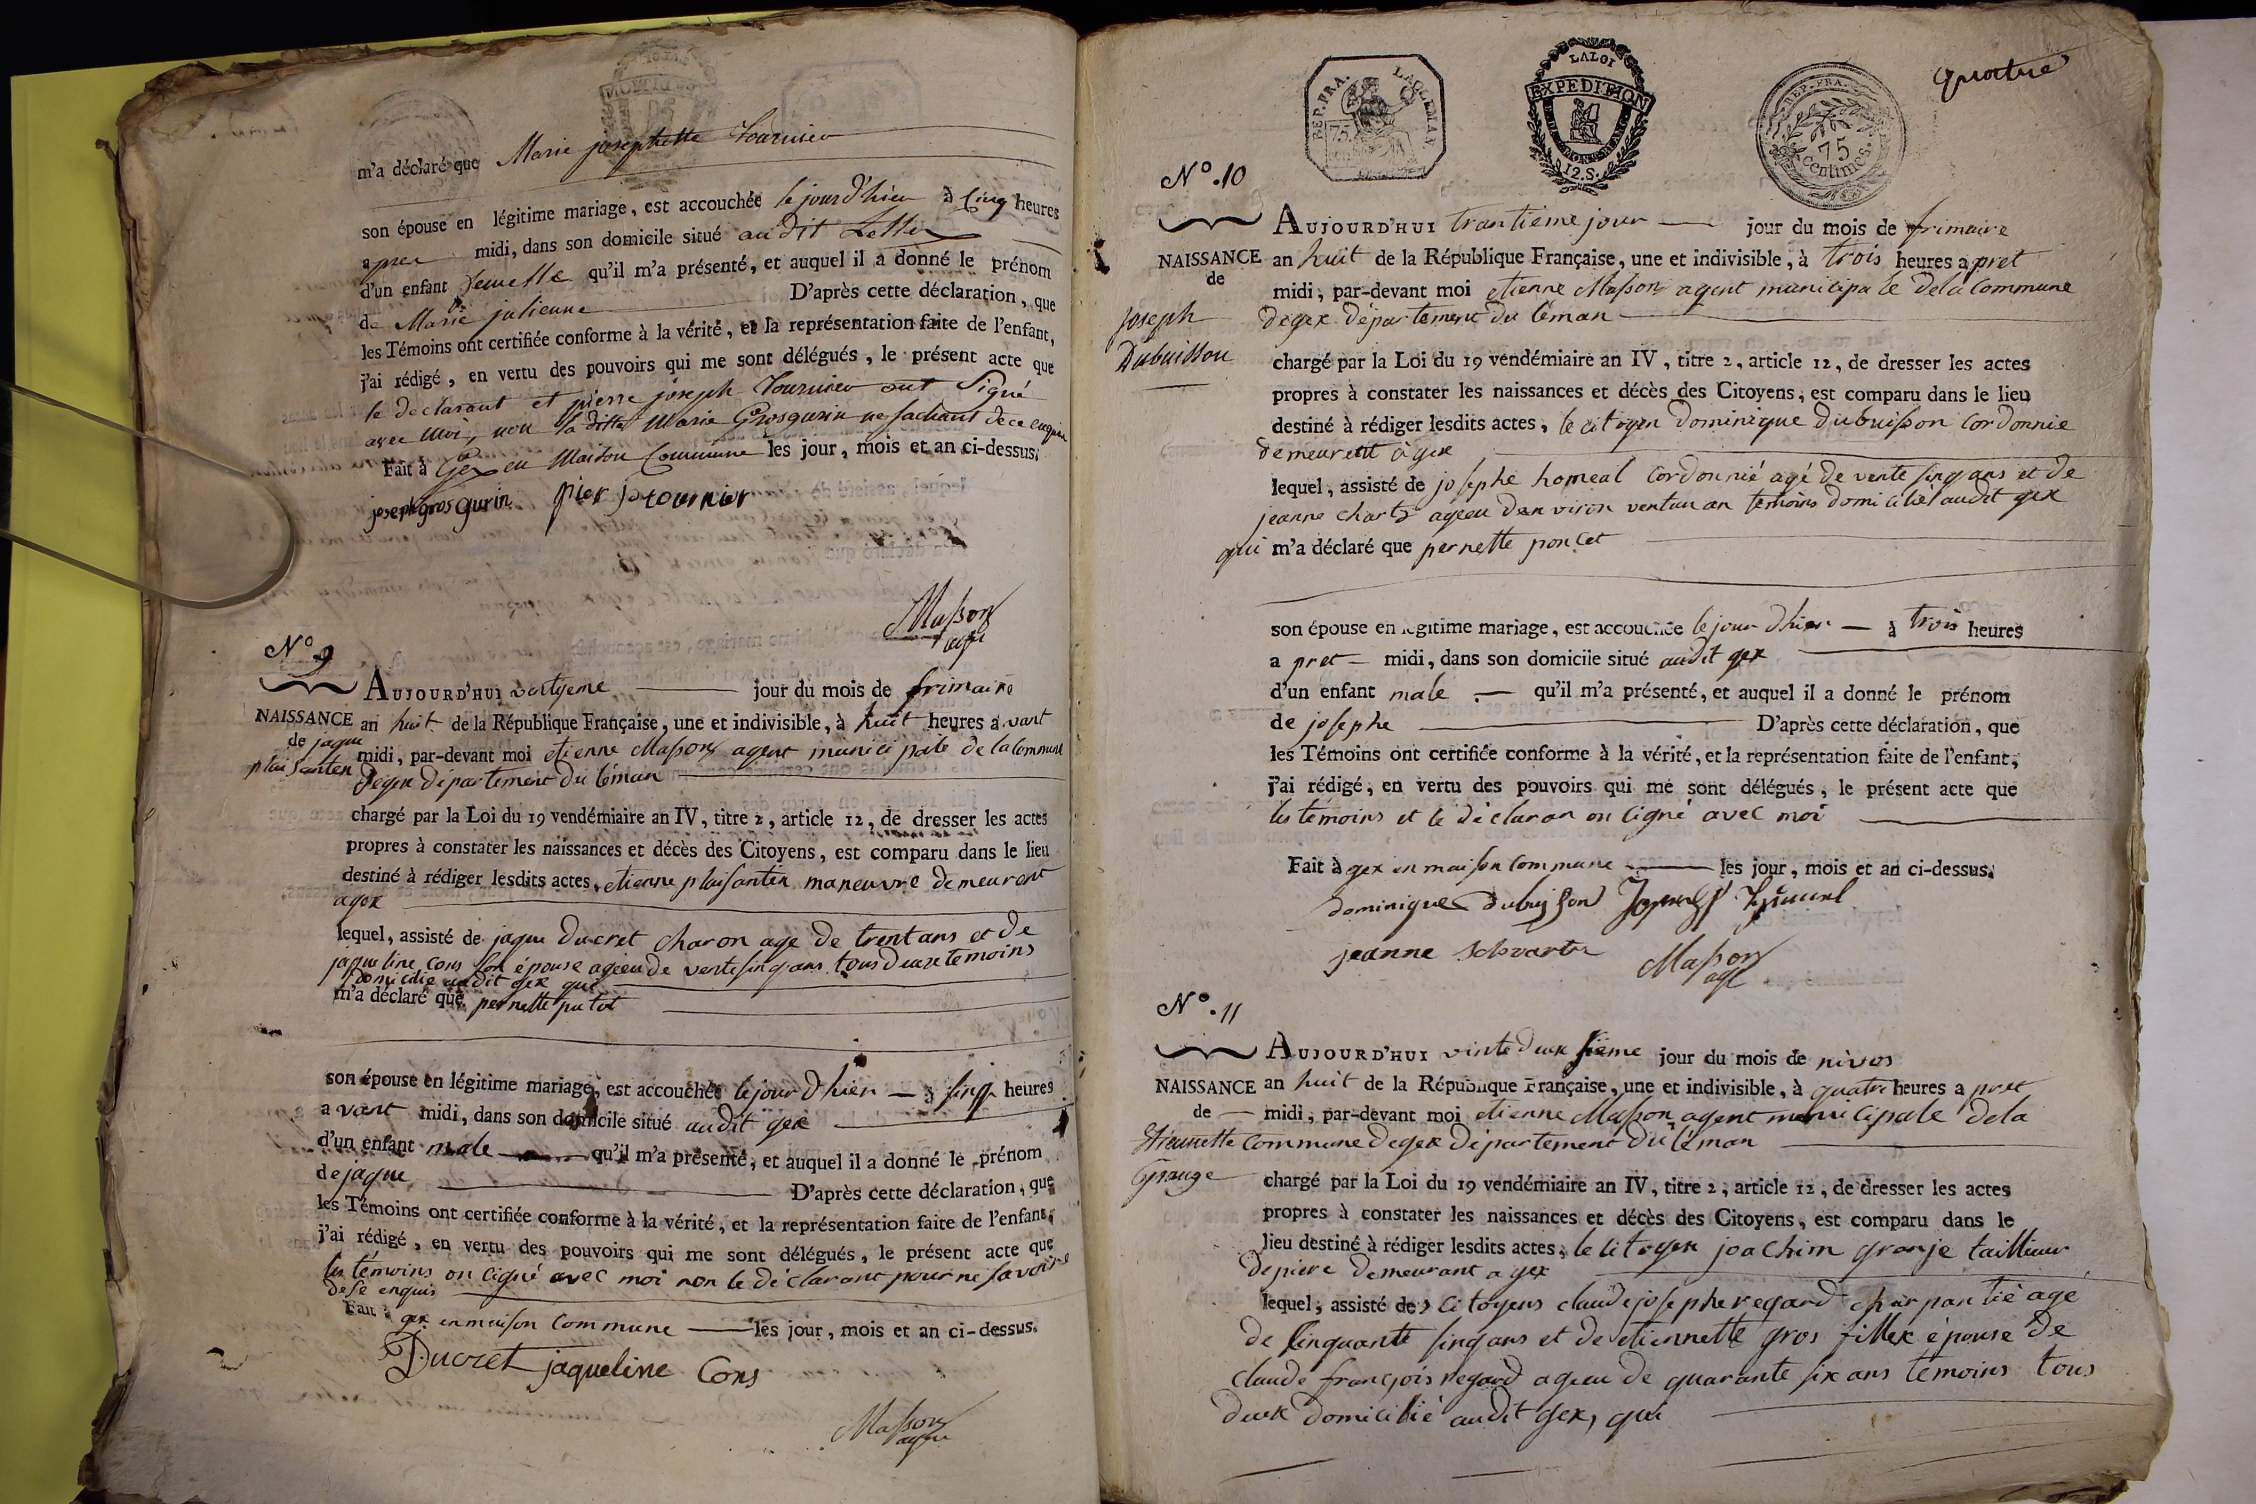 m'a déclaré que Marie josephette Tournier
son épouse en légitime mariage, est accouchée le jour d'hier à Cinq heures
apres midi, dans son domicile situé au dit
d'un enfant femelle qu'il m'a présenté, et auquel il a donné le prénom
de Marie julienne D'après cette déclaration, que
les Témoins ont certifiée conforme à la vérité, et la représentation faite de l'enfant,
j'ai rédigé, en vertu des pouvoirs qui me sont délégués, le présent acte que
le declarant et pierre joseph Tournier ont Signé
avec moi, non la ditte Marie Grosgurin ne sachant de ce enquise
Fait à Gex en Maison Commune les jour, mois et an ci-dessus.
joseph gros gurin pier jo tournier
Masson
agt
N° 9
AUJOURD'HUI vertyeme jour du mois de frimaire
NAISSANCE an huit de la République Française, une et indivisible, à huit heures avant
de jaque midi, par-devant moi etienne Masson agent municipale de la Commune
plaisanten de gex département du léman
chargé par la Loi du 19 vendémiaire an IV, titre 2, article 12, de dresser les actes
propres à constater les naissances et décès des Citoyens, est comparu dans le lieu
destiné à rédiger lesdits actes, etienne plaisanten maneuvre demeurent
a gex
lequel, assisté de jaque Ducret charon age de trent ans et de
jaqueline Cons son épouse ageeu de vente sinq ans tous deux temoins
domicilie audit gex qui
m'a déclaré que pernette putot
son épouse en légitime mariage, est accouchée le jour d'hier à sinq heures
avant midi, dans son domicile situé audit gex
d'un enfant male qu'il m'a présenté, et auquel il a donné le prénom
de jaque D'après cette déclaration, que
les Témoins ont certifiée conforme à la vérité, et la représentation faite de l'enfant,
j'ai rédigé, en vertu des pouvoirs qui me sont délégués, le présent acte que
les témoins on ligné avec moi non le déclarant pour ne savoire
de se enquis
Fait à gex en maison Commune les jour, mois et an ci-dessus.
Ducret jaqueline Cons
Masson
agt
quatre
REP. FRA. LAGEMAN
75
LA LOI
EXPEDITION
12.S.
REP. FRA.
75
centimes.
N°. 10
AUJOURD'HUI trantième jour jour du mois de frimaire
NAISSANCE an huit de la République Française, une et indivisible, à trois heures a pret
de midi, par-devant moi etienne Masson agent municipale de la Commune
joseph de gex département du léman
Dubuisson chargé par la Loi du 19 vendémiaire an IV, titre 2, article 12, de dresser les actes
propres à constater les naissances et décès des Citoyens, est comparu dans le lieu
destiné à rédiger lesdits actes, le citoyen Dominique Dubuisson Cordonnie
demeurent à gex
lequel, assisté de josephe homeal Cordonnié agé de vente sinq ans et de
jeanne chartz ageeu d'anviron ventun an temoins domicilié audit gex
qui m'a déclaré que pernette poncet
son épouse en légitime mariage, est accouchée le jour d'hier à trois heures
a pret midi, dans son domicile situé audit gex
d'un enfant male qu'il m'a présenté, et auquel il a donné le prénom
de josephe D'après cette déclaration, que
les Témoins ont certifiée conforme à la vérité, et la représentation faite de l'enfant,
j'ai rédigé, en vertu des pouvoirs qui me sont délégués, le présent acte que
les témoins et le déclaran on ligné avec moi
Fait à gex en maison Commune les jour, mois et an ci-dessus.
dominique dubuison
jeanne schvartz Masson
agt
N°. 11
AUJOURD'HUI vinte deux sieme jour du mois de nivos
NAISSANCE an huit de la République Française, une et indivisible, à quatre heures a pret
de midi, par-devant moi etienne Masson agent municipale de la
Etiennette Commune de gex département du léman
Grange chargé par la Loi du 19 vendémiaire an IV, titre 2, article 12, de dresser les actes
propres à constater les naissances et décès des Citoyens, est comparu dans le
lieu destiné à rédiger lesdits actes, le citoyen joachim granje taillieur
de piere demeurant a gex
lequel, assisté des Citoyens claude josephe regard charpantié age
de sinquante sinq ans et de etiennette gros fillex épouse de
claude françois regard ageeu de quarante six ans temoins tous
deux domicilié audit gex, qui